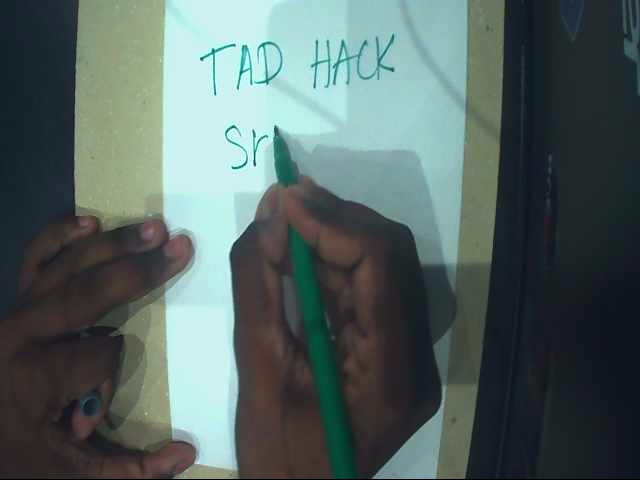 TAD HACK
Sr